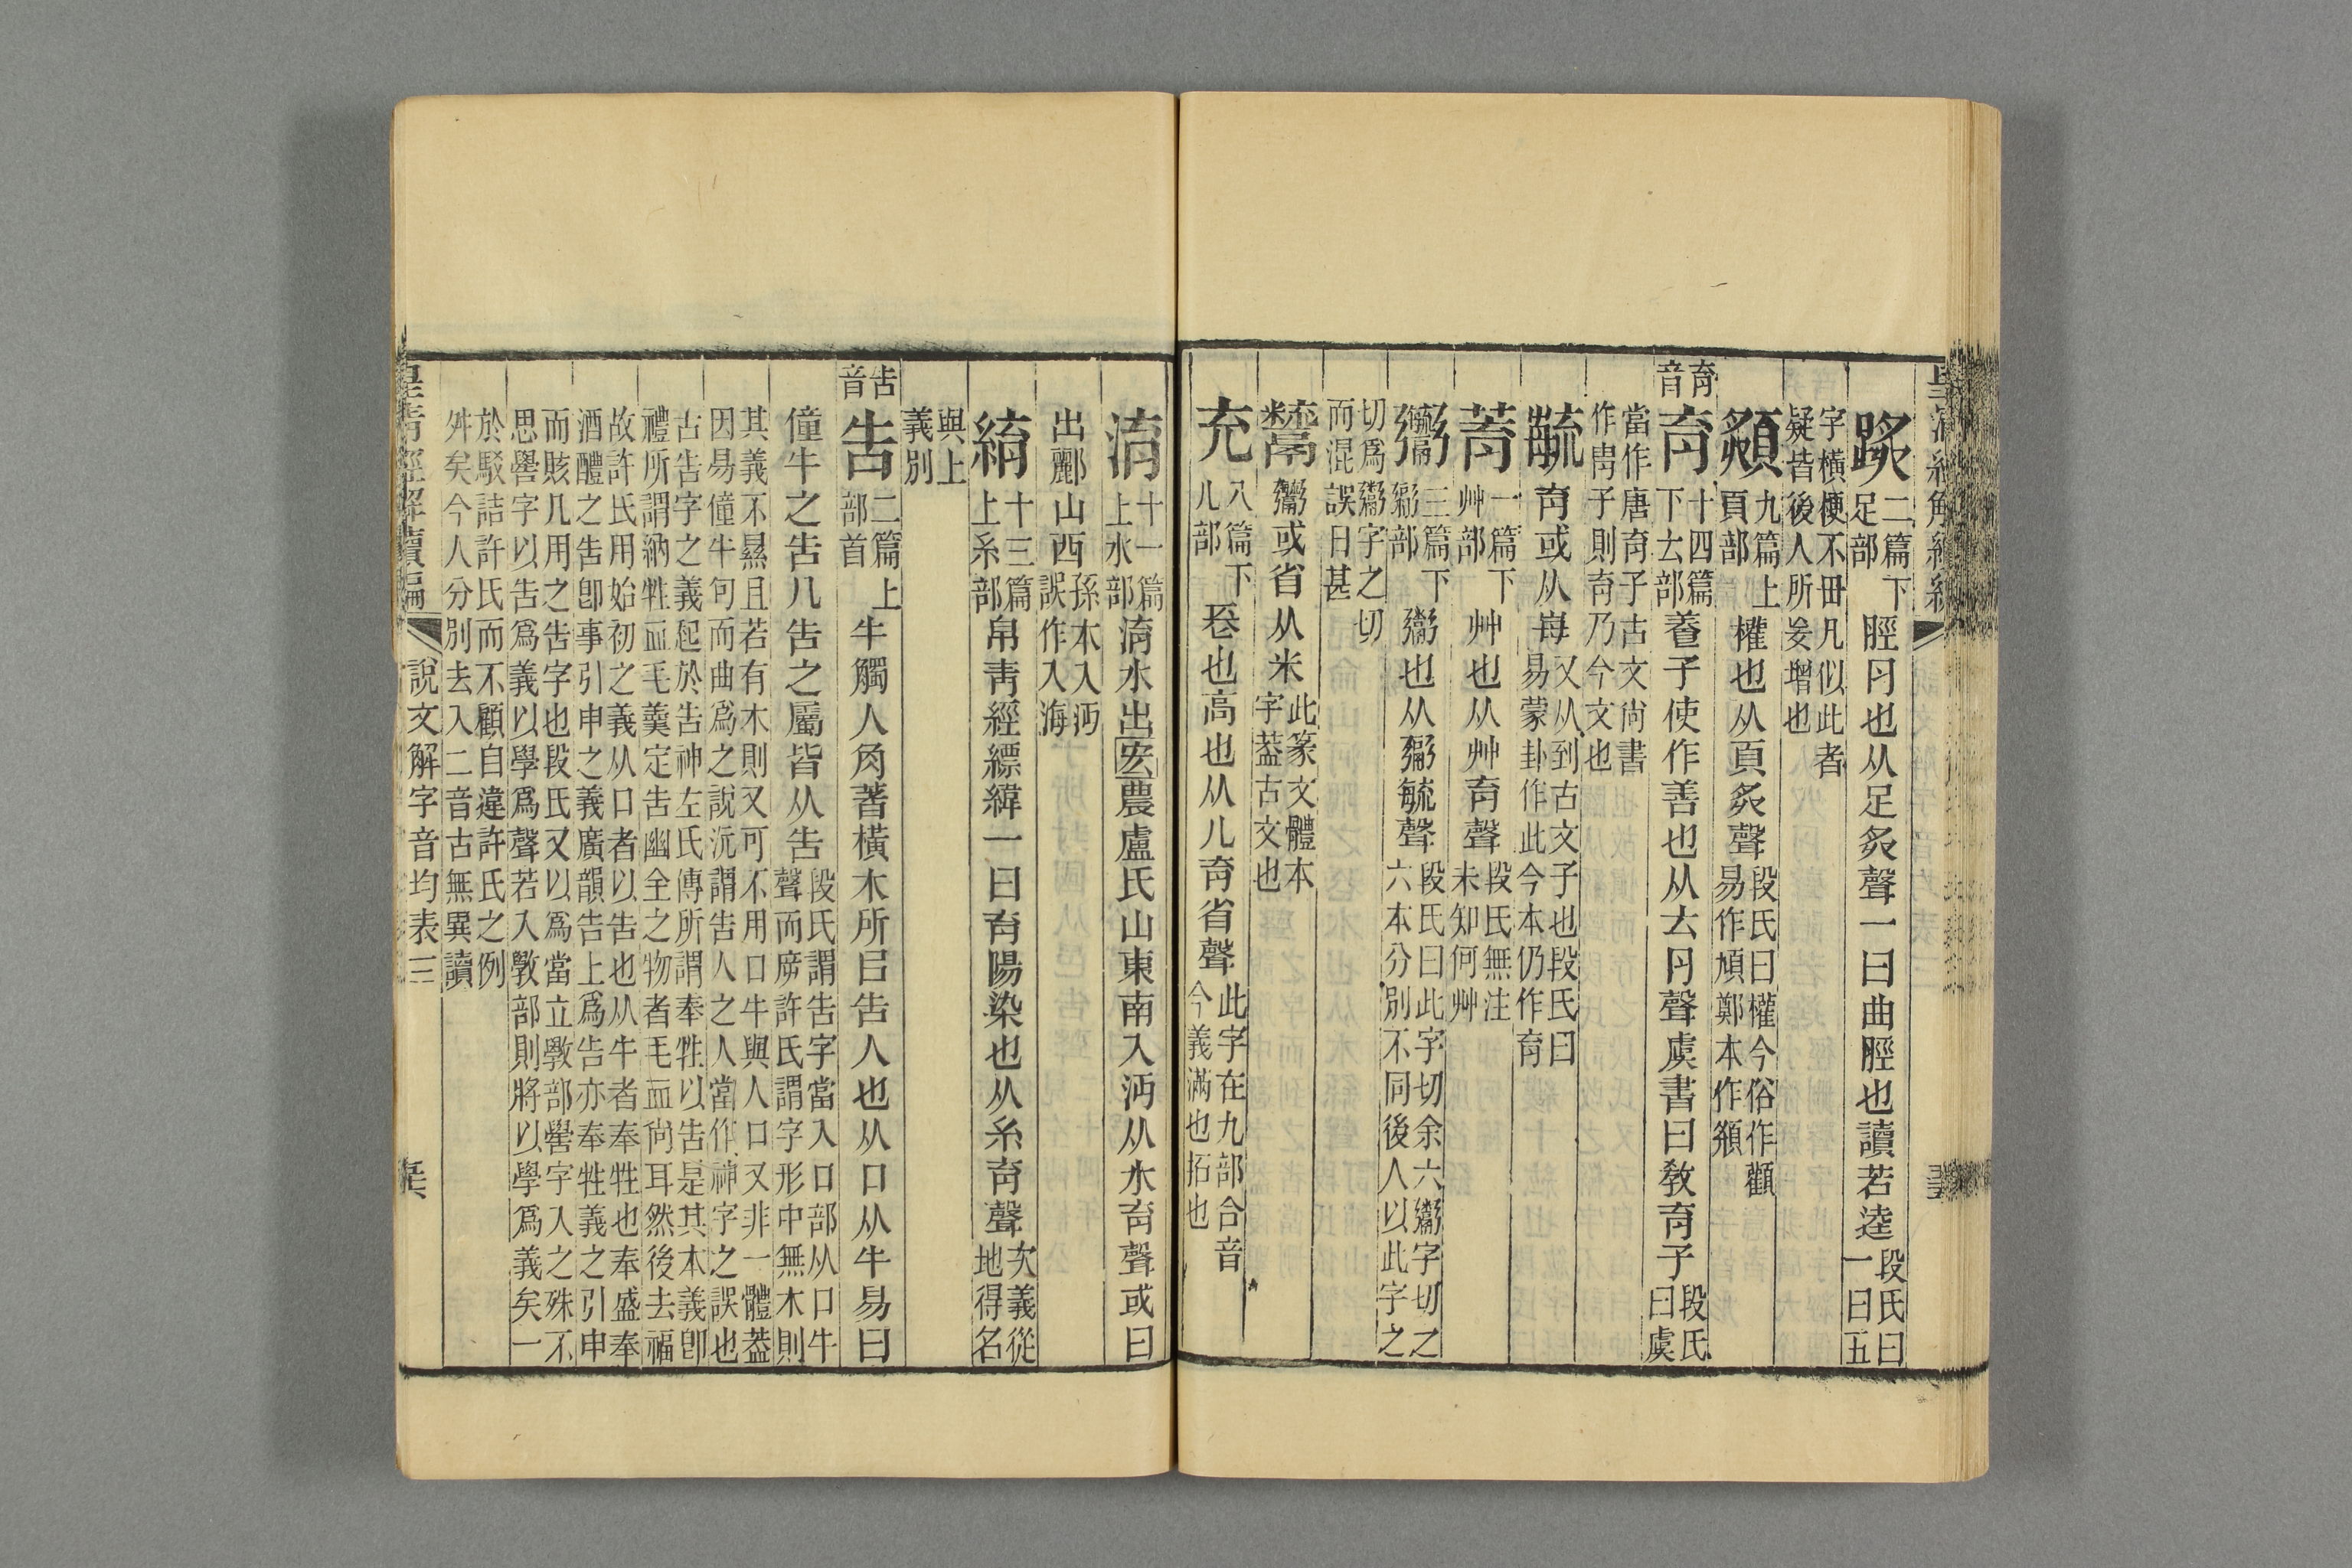 䟣二篇下足部脛𠕋也从足炙聲一曰曲脛也讀若逵段氏曰一曰五
字橫梗不毌凡似此者疑皆後人所妄增也
䫤九篇上頁部權也从頁炙聲段氏曰權今俗作顴易作頄鄭本作頯
育音
育十四篇下𠫓部養子使作善也从𠫓𠕋聲虞書曰教育子段氏曰虞
當作唐育子古文尚書作冑子則育乃今文也
毓育或从每又从到古文子也段氏曰易蒙卦作此今本仍作育
蓄一篇下艸部艸也从艸育聲段氏無注未知何艸
鬻三篇下䰜部鬻也从䰜毓聲段氏曰此字切余六鬻字切之六本分別不同後人以此字之
切爲鬻字之切而混誤日甚
鬻或省从米此篆文體本字葢古文也
充八篇下儿部𠑽也高也从儿育省聲此字在九部合音今義滿也拓也
淯十一篇上水部淯水出宏農盧氏山東南入沔从水育聲或曰
出酈山西孫本入沔誤作入海
綃十三篇上糸部帛靑經縹緯一曰育陽染也从糸育聲次義從地得名
與上義別
告音
告二篇上部首牛觸人角著橫木所㠯告人也从口从牛易曰
僮牛之告凡告之屬皆从告段氏謂告字當入口部从口牛聲而廢許氏謂字形中無木則
其義不顯且若有木則又可不用口牛與人口又非一體葢因易僮牛句而曲爲之說沅謂告人之人當作神字之誤也
古告字之義起於告神左氏傳所謂奉牲以告是其本義卽禮所謂納牲血毛羹定告幽全之物者毛血尙耳然後去福
故許氏用始初之義从口者以告也从牛者奉牲也奉盛奉酒醴之告卽事引申之義廣韻告上爲告亦奉牲義之引申
而賅凡用之告字也段氏又以爲當立斆部嚳字入之殊不思嚳字以告爲義以學爲聲若入斆部則將以學爲義矣一
於駁詰許氏而不顧自違許氏之例舛矣今人分別去入二音古無異讀
皇清經解續編
說文解字音均表三